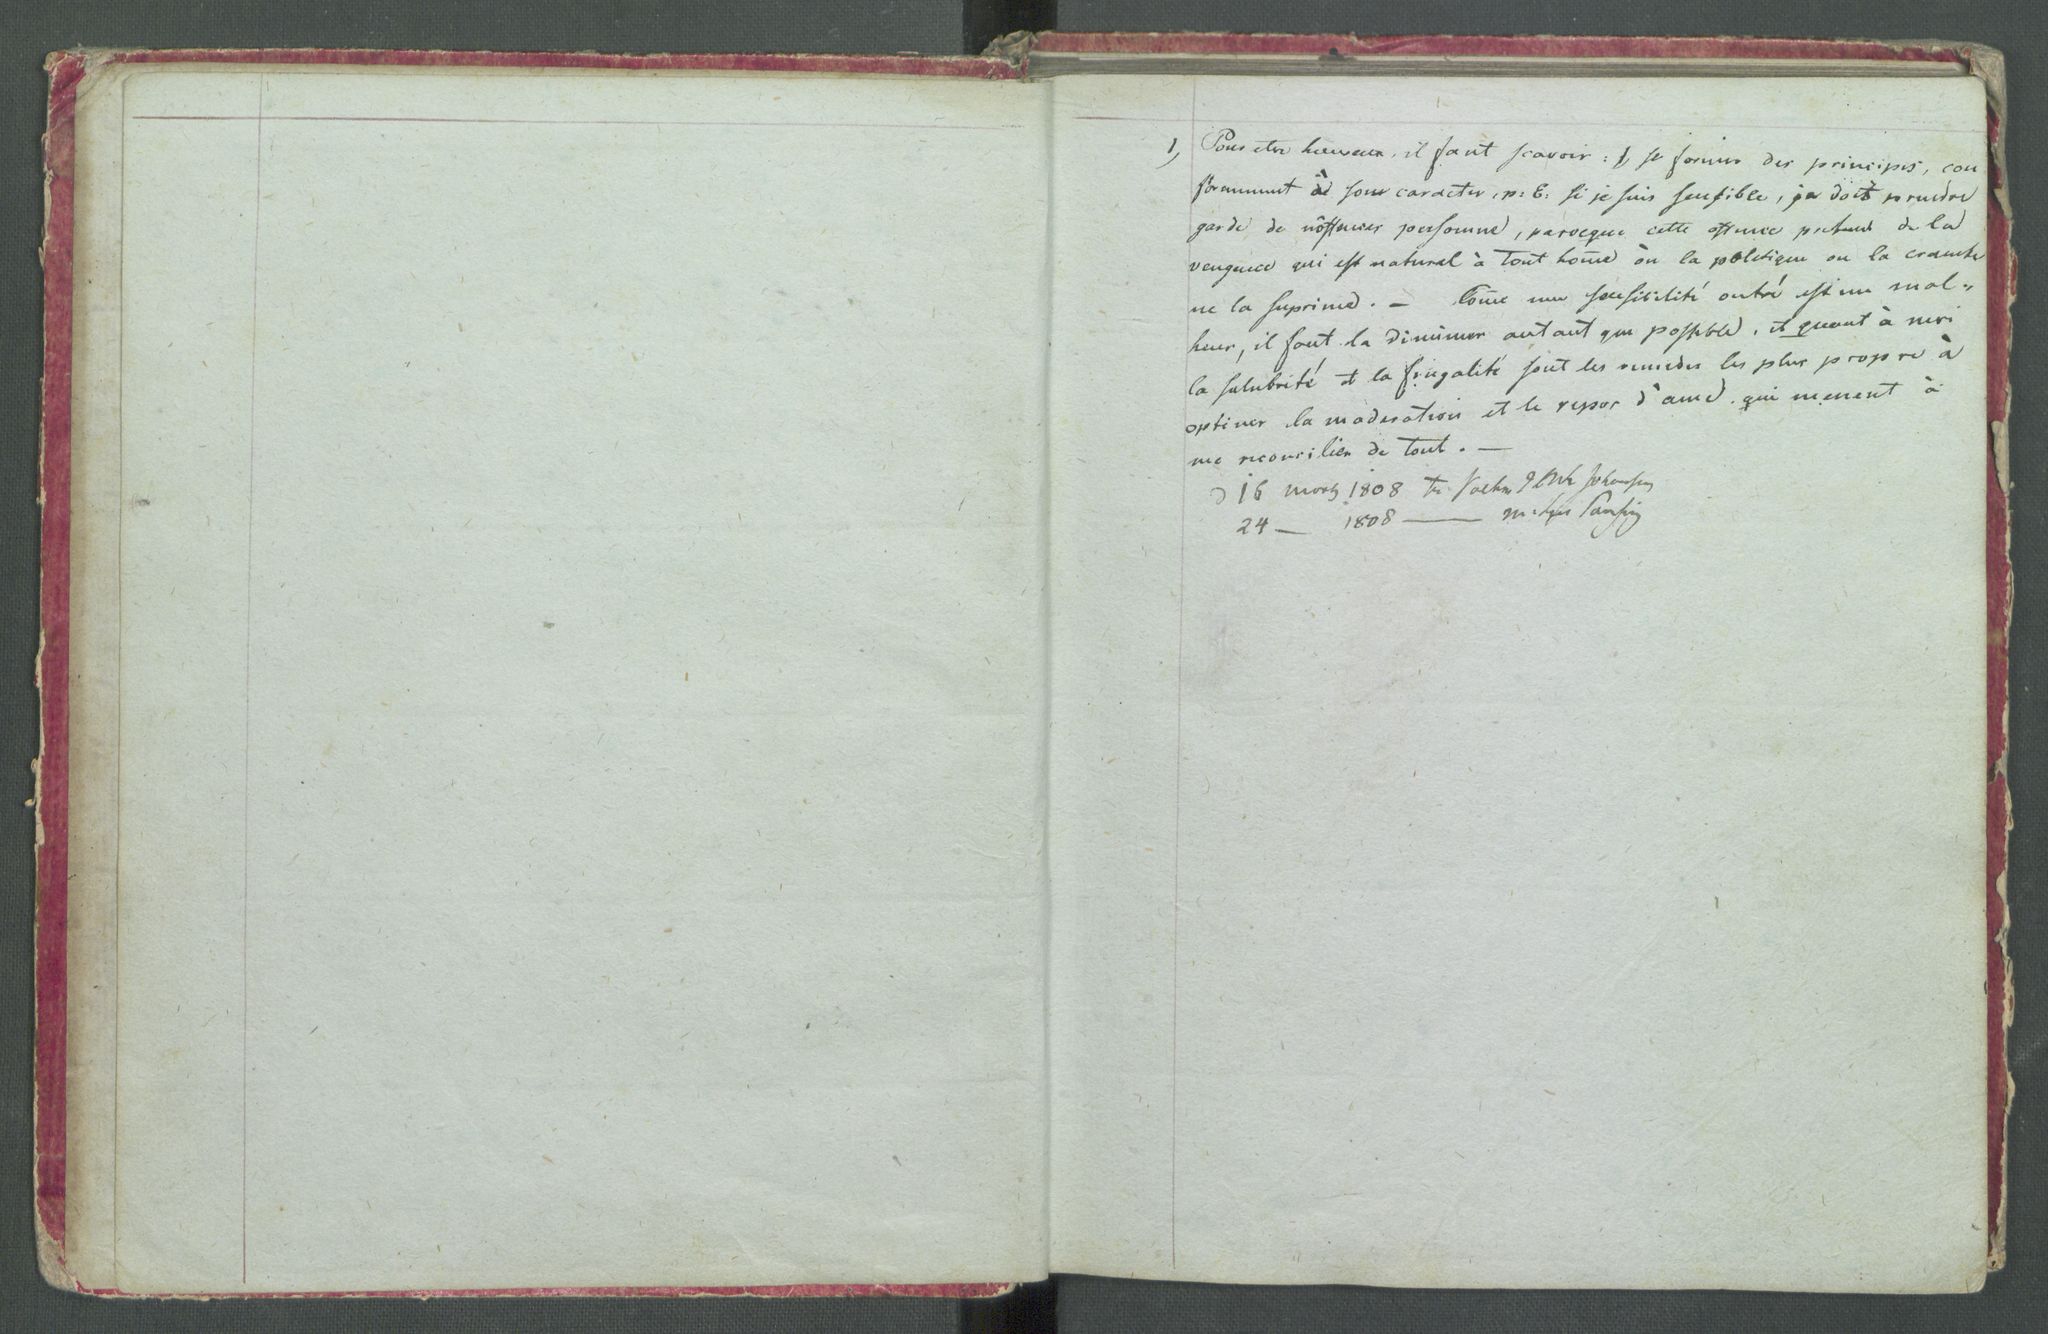 1) Pour etre heureux, il faut scavoir: 1, se former des principes, con
formement à son caracter, p: E: si je suis sensible, je dois prendre
garde de n'offenser personne, parceque cette offence pretend de la
vengence qui est natural à tout hom̄e où la politique ou la crainte
ne la suprime. — Com̄e une sensibilité outré est un mal-
heur, il faut la diminuer autant que possible, et quant à moi
la salubrité et la frugalité sont les remedes les plus propre à
optiner la moderation et le repos d'ame, qui menent à
me reconcilier de tout. —
d 16 marts 1808 Johansen
24 — 1808 —